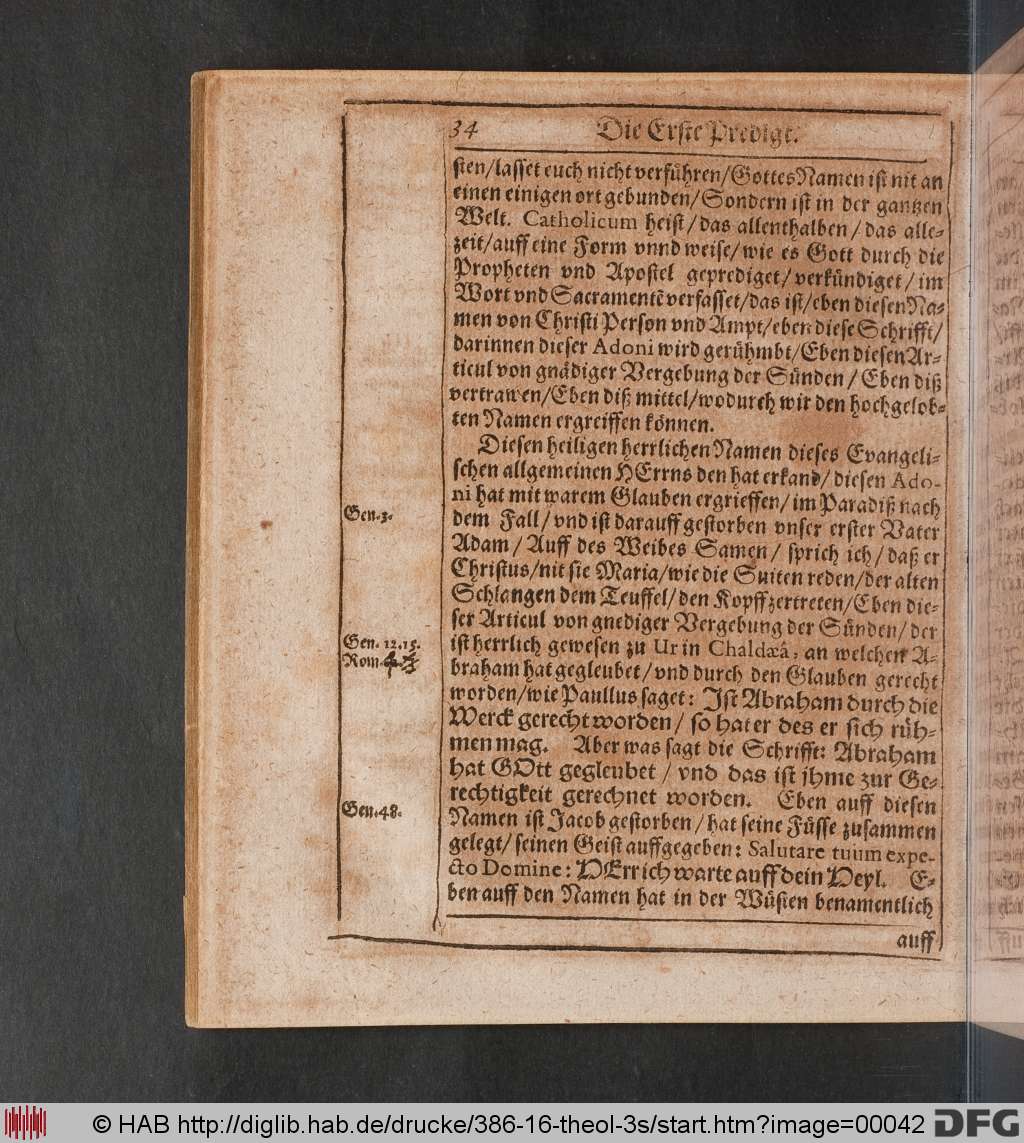 34 Die Erste Predigt.
sten/lasset euch nicht verführen/GottesNamen ist nit an
einen einigen ort gebunden/Sondern ist in der gantzen
Welt. Catholicum heist/das allenthalben/das alle-
zeit/auff eine Form vnnd weise/wie es Gott durch die
Propheten vnd Apostel geprediget/verkündiget/im
Wort vnd Sacramentē verfasset/das ist/eben diesen Na-
men von Christi Person vnd Ampt/eben diese Schrifft/
darinnen dieser Adoni wird gerühmbt/Eben diesen Ar-
ticul von gnädiger Vergebung der Sünden/Eben diß
vertrawen/Eben diß mittel/wodurch wir den hochgelob-
ten Namen ergreiffen können.
Diesen heiligen herrlichen Namen dieses Evangeli-
schen allgemeinen HErrns den hat erkand/diesen Ado-
ni hat mit warem Glauben ergrieffen/im Paradiß nach
Gen.3. dem Fall/vnd ist darauff gestorben vnser erster Vater
Adam/Auff des Weibes Samen/sprich ich/daß er
Christus/nit sie Maria/wie die Suiten reden/der alten
Schlangen dem Teuffel/den Kopff zertreten/Eben die-
ser Articul von gnediger Vergebung der Sünden/der
Gen. 12.15. ist herrlich gewesen zu Ur in Chaldæâ, an welchen A-
Rom. braham hat gegleubet/vnd durch den Glauben gerecht
worden/wie Paullus saget: Ist Abraham durch die
Werck gerecht worden/so hat er des er sich rüh-
men mag. Aber was sagt die Schrifft: Abraham
hat GOtt gegleubet/vnd das ist jhme zur Ge-
rechtigkeit gerechnet worden. Eben auff diesen
Gen.48. Namen ist Jacob gestorben/hat seine Füsse zusammen
gelegt/seinen Geist auffgegeben: Salutare tuum expe-
cto Domine: HErr ich warte auff dein Heyl. E-
ben auff den Namen hat in der Wüsten benamentlich
auff
© HAB http://diglib.hab.de/drucke/386-16-theol-3s/start.htm?image=00042 DFG